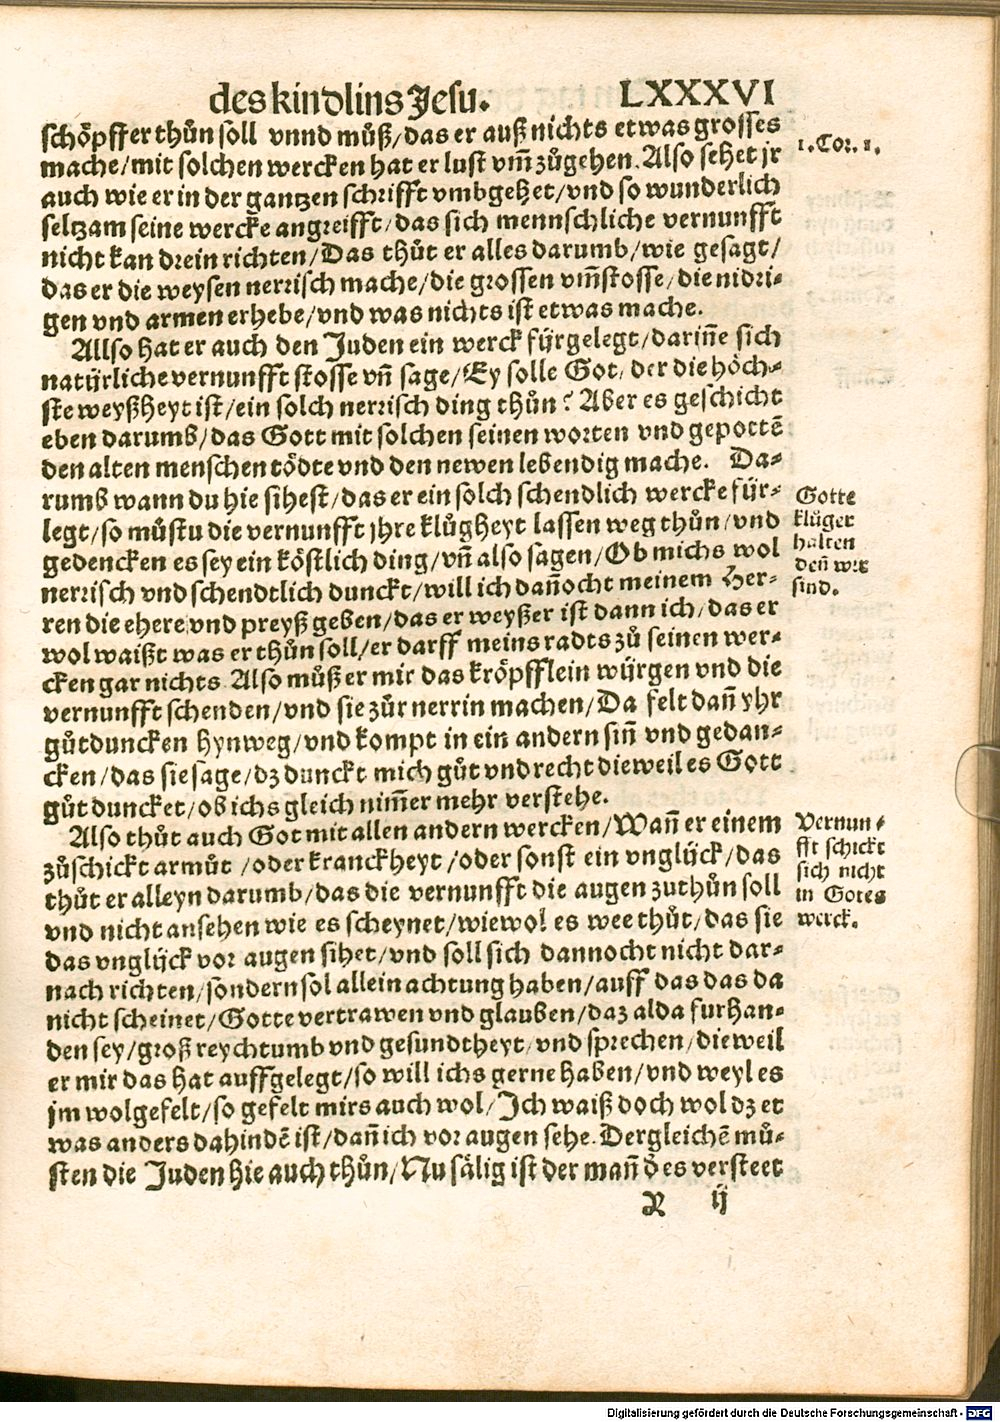 des kindlins Jesu. LXXXVI
schöpffer thůn soll vnnd můß/das er auß nichts etwas grosses
mache/mit solchen wercken hat er lust vm̃ zůgehen. Also sehet jr
auch wie er in der gantzen schrifft vmbgehet/vnd so wunderlich
seltzam seine wercke angreifft/das sich mennschliche vernunfft
nicht kan drein richten/Das thůt er alles darumb/wie gesagt/
das er die weysen nerrisch mache/die grossen vm̃stosse/die nidri-
gen vnd armen erhebe/vnd was nichts ist etwas mache.
1. Cor. 1.
Allso hat er auch den Juden ein werck fürgelegt/darin̄e sich
natürliche vernunfft stosse vn̄ sage/Ey solle Got/der die höch-
ste weyßheyt ist/ein solch nerrisch ding thůn? Aber es geschicht
eben darumb/das Gott mit solchen seinen worten vnd gepottē
den alten menschen tödte vnd den newen lebendig mache. Da-
rumb wann du hie sihest/das er ein solch schendlich wercke für-
legt/so můstu die vernunfft jhre klůgheyt lassen weg thůn/vnd
gedencken es sey ein köstlich ding/vn̄ also sagen/Ob michs wol
nerrisch vnd schendtlich dunckt/will ich dan̄ocht meinem Her-
ren die ehere vnd preyß geben/das er weyßer ist dann ich/das er
wol waißt was er thůn soll/er darff meins radts zů seinen wer-
cken gar nichts. Also můß er mir das kröpfflein würgen vnd die
vernunfft schenden/vnd sie zůr nerrin machen/Da felt dan̄ yhr
gůtduncken hynweg/vnd kompt in ein andern sin̄ vnd gedan-
cken/das sie sage/dz dunckt mich gůt vnd recht dieweil es Gott
gůt duncket/ob ichs gleich nim̄er mehr verstehe.
Gotte
klůger
halten
den̄ wir
sind.
Also thůt auch Got mit allen andern wercken/Wan̄ er einem
zůschickt armůt/oder kranckheyt/oder sonst ein vnglück/das
thůt er alleyn darumb/das die vernunfft die augen zuthůn soll
vnd nicht ansehen wie es scheynet/wiewol es wee thůt/das sie
das vnglück vor augen sihet/vnd soll sich dannocht nicht dar-
nach richten/sondern sol allein achtung haben/auff das das da
nicht scheinet/Gotte vertrawen vnd glauben/daz alda furhan-
den sey/groß reychtumb vnd gesundtheyt/vnd sprechen/dieweil
er mir das hat auffgelegt/so will ichs gerne haben/vnd weyl es
jm wolgefelt/so gefelt mirs auch wol/Ich waiß doch wol dz et
was anders dahindē ist/dan̄ ich vor augen sehe. Dergleichē mů-
sten die Juden hie auch thůn/Nu sälig ist der man̄ d̄ es versteet
Vernun-
fft schickt
sich nicht
in Gotes
werck.
R ij
Digitalisierung gefördert durch die Deutsche Forschungsgemeinschaft - DFG